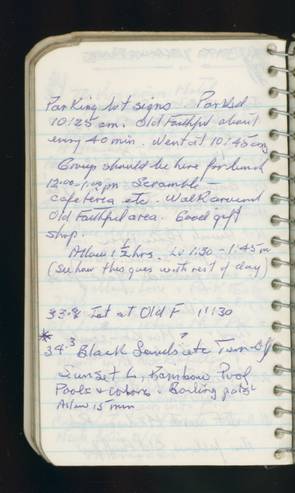 Parking lot signs. Parked
10:25 am. Old Faithful about
every 40 min. Went at 10:45 am
Group should be here for lunch
12:00-1:00 pm Scramble -
cafeteria etc. Walk around
Old Faithful area. Good gift
shop.
Allow 1 1/2 hrs. Lv 1:30 - 1:45 pm
(See how this goes with rest of day)
33.8 Jct at Old F 11:30
* 34.3 Black Sands etc Turn-off
Sunset L, Rainbow Pool
Pools & colors. Boiling pots
Allow 15 min